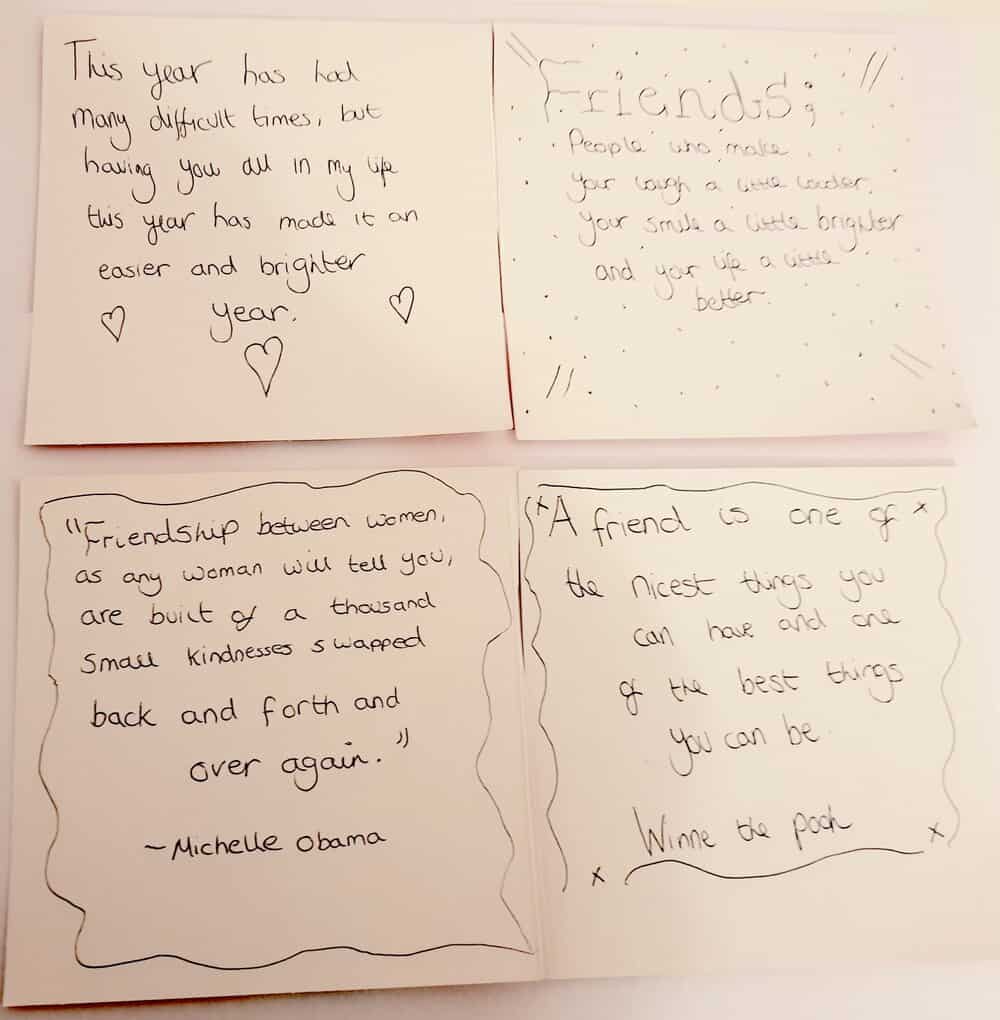 This year has had
many difficult times, but
having you all in my life
this year has made it an
easier and brighter
year.
Friends;
People who make
your laugh a little louder,
your smile a little brighter
and your life a little
better.
"Friendship between women,
as any woman will tell you,
are built of a thousand
small kindnesses swapped
back and forth and
over again."
~Michelle Obama
"A friend is one of
the nicest things you
can have and one
of the best things
you can be
Winne the pooh